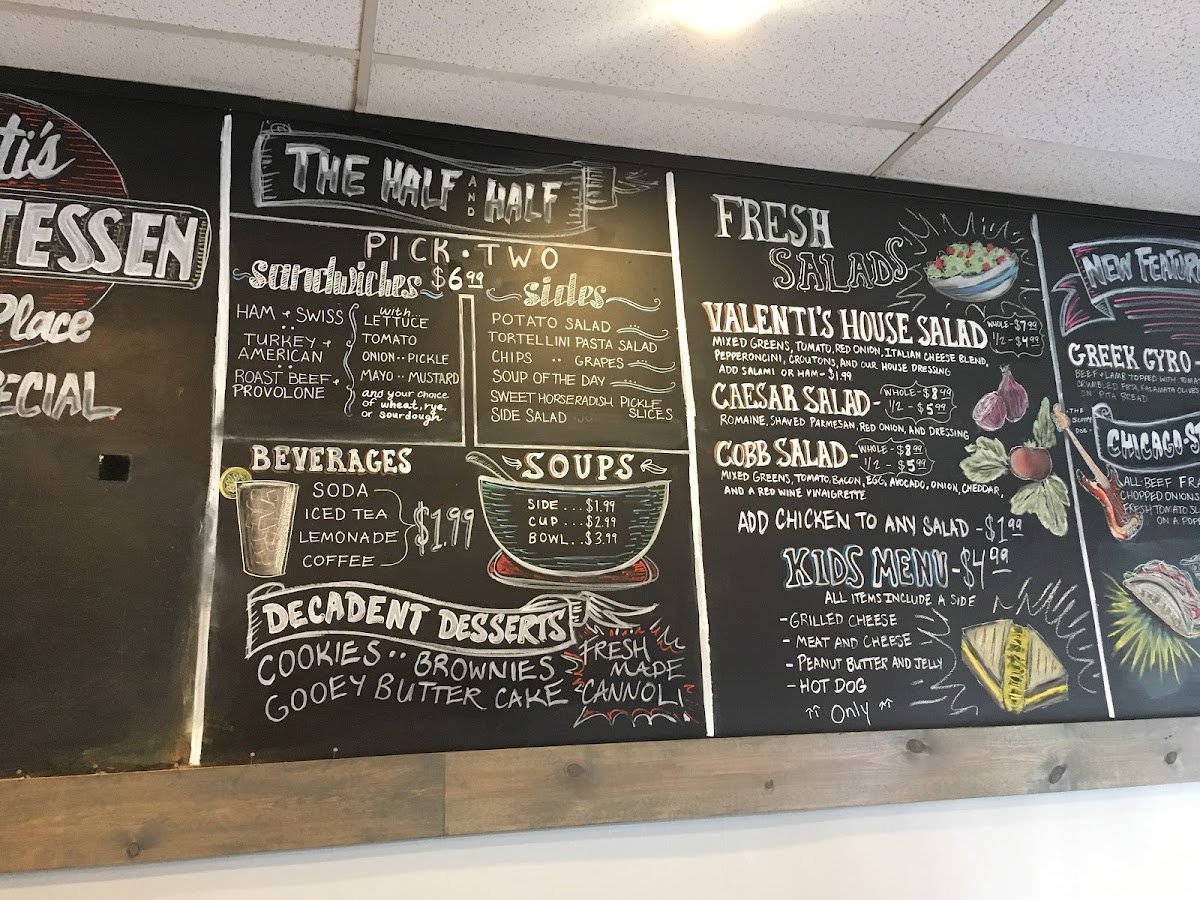 ti's
TESSEN
Place
ECIAL
THE HALF AND HALF
PICK · TWO
sandwiches $6.99
HAM + SWISS
TURKEY +
AMERICAN
ROAST BEEF +
PROVOLONE
with...
LETTUCE
TOMATO
ONION ·· PICKLE
MAYO ·· MUSTARD
and your choice
of wheat, rye,
or sourdough
sides
POTATO SALAD
TORTELLINI PASTA SALAD
CHIPS ·· GRAPES
SOUP OF THE DAY
SWEET HORSERADISH PICKLE
SLICES
SIDE SALAD
BEVERAGES
SODA
ICED TEA
LEMONADE
COFFEE
$1.99
SOUPS
SIDE ... $1.99
CUP ... $2.99
BOWL .. $3.99
DECADENT DESSERTS
COOKIES ·· BROWNIES
GOOEY BUTTER CAKE
FRESH
MADE
CANNOLI
FRESH
SALADS
VALENTI'S HOUSE SALAD
WHOLE - $7.99
1/2 - $4.99
MIXED GREENS, TOMATO, RED ONION, ITALIAN CHEESE BLEND,
PEPPERONCINI, CROUTONS, AND OUR HOUSE DRESSING
ADD SALAMI OR HAM - $1.99
CAESAR SALAD -
WHOLE - $8.49
1/2 - $5.99
ROMAINE, SHAVED PARMESAN, RED ONION, AND DRESSING
COBB SALAD -
WHOLE - $8.99
1/2 - $5.99
MIXED GREENS, TOMATO, BACON, EGG, AVOCADO, ONION, CHEDDAR,
AND A RED WINE VINAIGRETTE
ADD CHICKEN TO ANY SALAD - $1.99
KIDS MENU - $4.99
ALL ITEMS INCLUDE A SIDE
- GRILLED CHEESE
- MEAT AND CHEESE
- PEANUT BUTTER AND JELLY
- HOT DOG
↑↑ Only ↑↑
NEW FEATUR
GREEK GYRO -
BEEF + LAMB TOPPED WITH TOMA
CRUMBLED FETA, KALAMATA OLIVES
ON PITA BREAD
· THE
DOG ·
CHICAGO-ST
ALL BEEF FRA
CHOPPED ONIONS
FRESH TOMATO SL
ON A POP